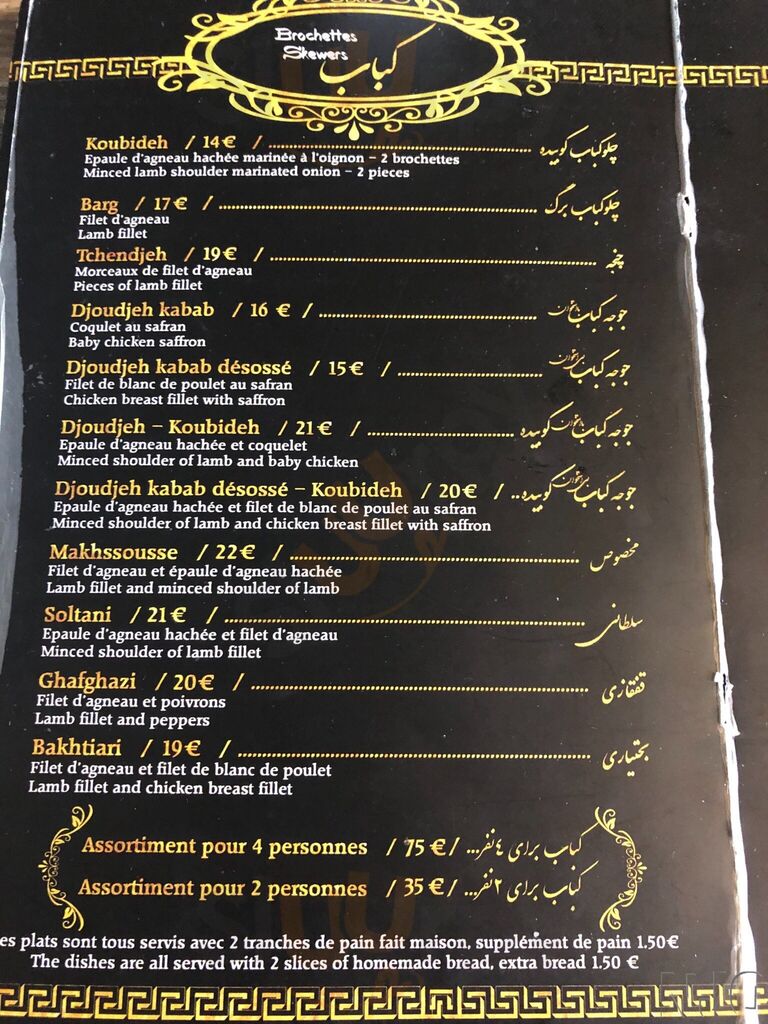 Brochettes
Skewers کباب
Koubideh / 14€ / چلوکباب کوبیده
Epaule d'agneau hachée marinée à l'oignon – 2 brochettes
Minced lamb shoulder marinated onion – 2 pieces
Barg / 17€ / چلوکباب برگ
Filet d'agneau
Lamb fillet
Tchendjeh / 19€ / چنجه
Morceaux de filet d'agneau
Pieces of lamb fillet
Djoudjeh kabab / 16 € / جوجه کباب بااستخوان
Coqulet au safran
Baby chicken saffron
Djoudjeh kabab désossé / 15€ / جوجه کباب بی استخوان
Filet de blanc de poulet au safran
Chicken breast fillet with saffron
Djoudjeh – Koubideh / 21€ / جوجه کباب بااستخوان کوبیده
Epaule d'agneau hachée et coquelet
Minced shoulder of lamb and baby chicken
Djoudjeh kabab désossé – Koubideh / 20€ / .. جوجه کباب بی استخوان کوبیده
Epaule d'agneau hachée et filet de blanc de poulet au safran
Minced shoulder of lamb and chicken breast fillet with saffron
Makhssousse / 22€ / مخصوص
Filet d'agneau et épaule d'agneau hachée
Lamb fillet and minced shoulder of lamb
Soltani / 21€ / سلطانی
Epaule d'agneau hachée et filet d'agneau
Minced shoulder of lamb fillet
Ghafghazi / 20€ / قفقازی
Filet d'agneau et poivrons
Lamb fillet and peppers
Bakhtiari / 19€ / بختیاری
Filet d'agneau et filet de blanc de poulet
Lamb fillet and chicken breast fillet
Assortiment pour 4 personnes / 75 € / ... کباب برای ٤ نفر
Assortiment pour 2 personnes / 35 € / ... کباب برای ۲ نفر
es plats sont tous servis avec 2 tranches de pain fait maison, supplément de pain 1.50€
The dishes are all served with 2 slices of homemade bread, extra bread 1.50 €